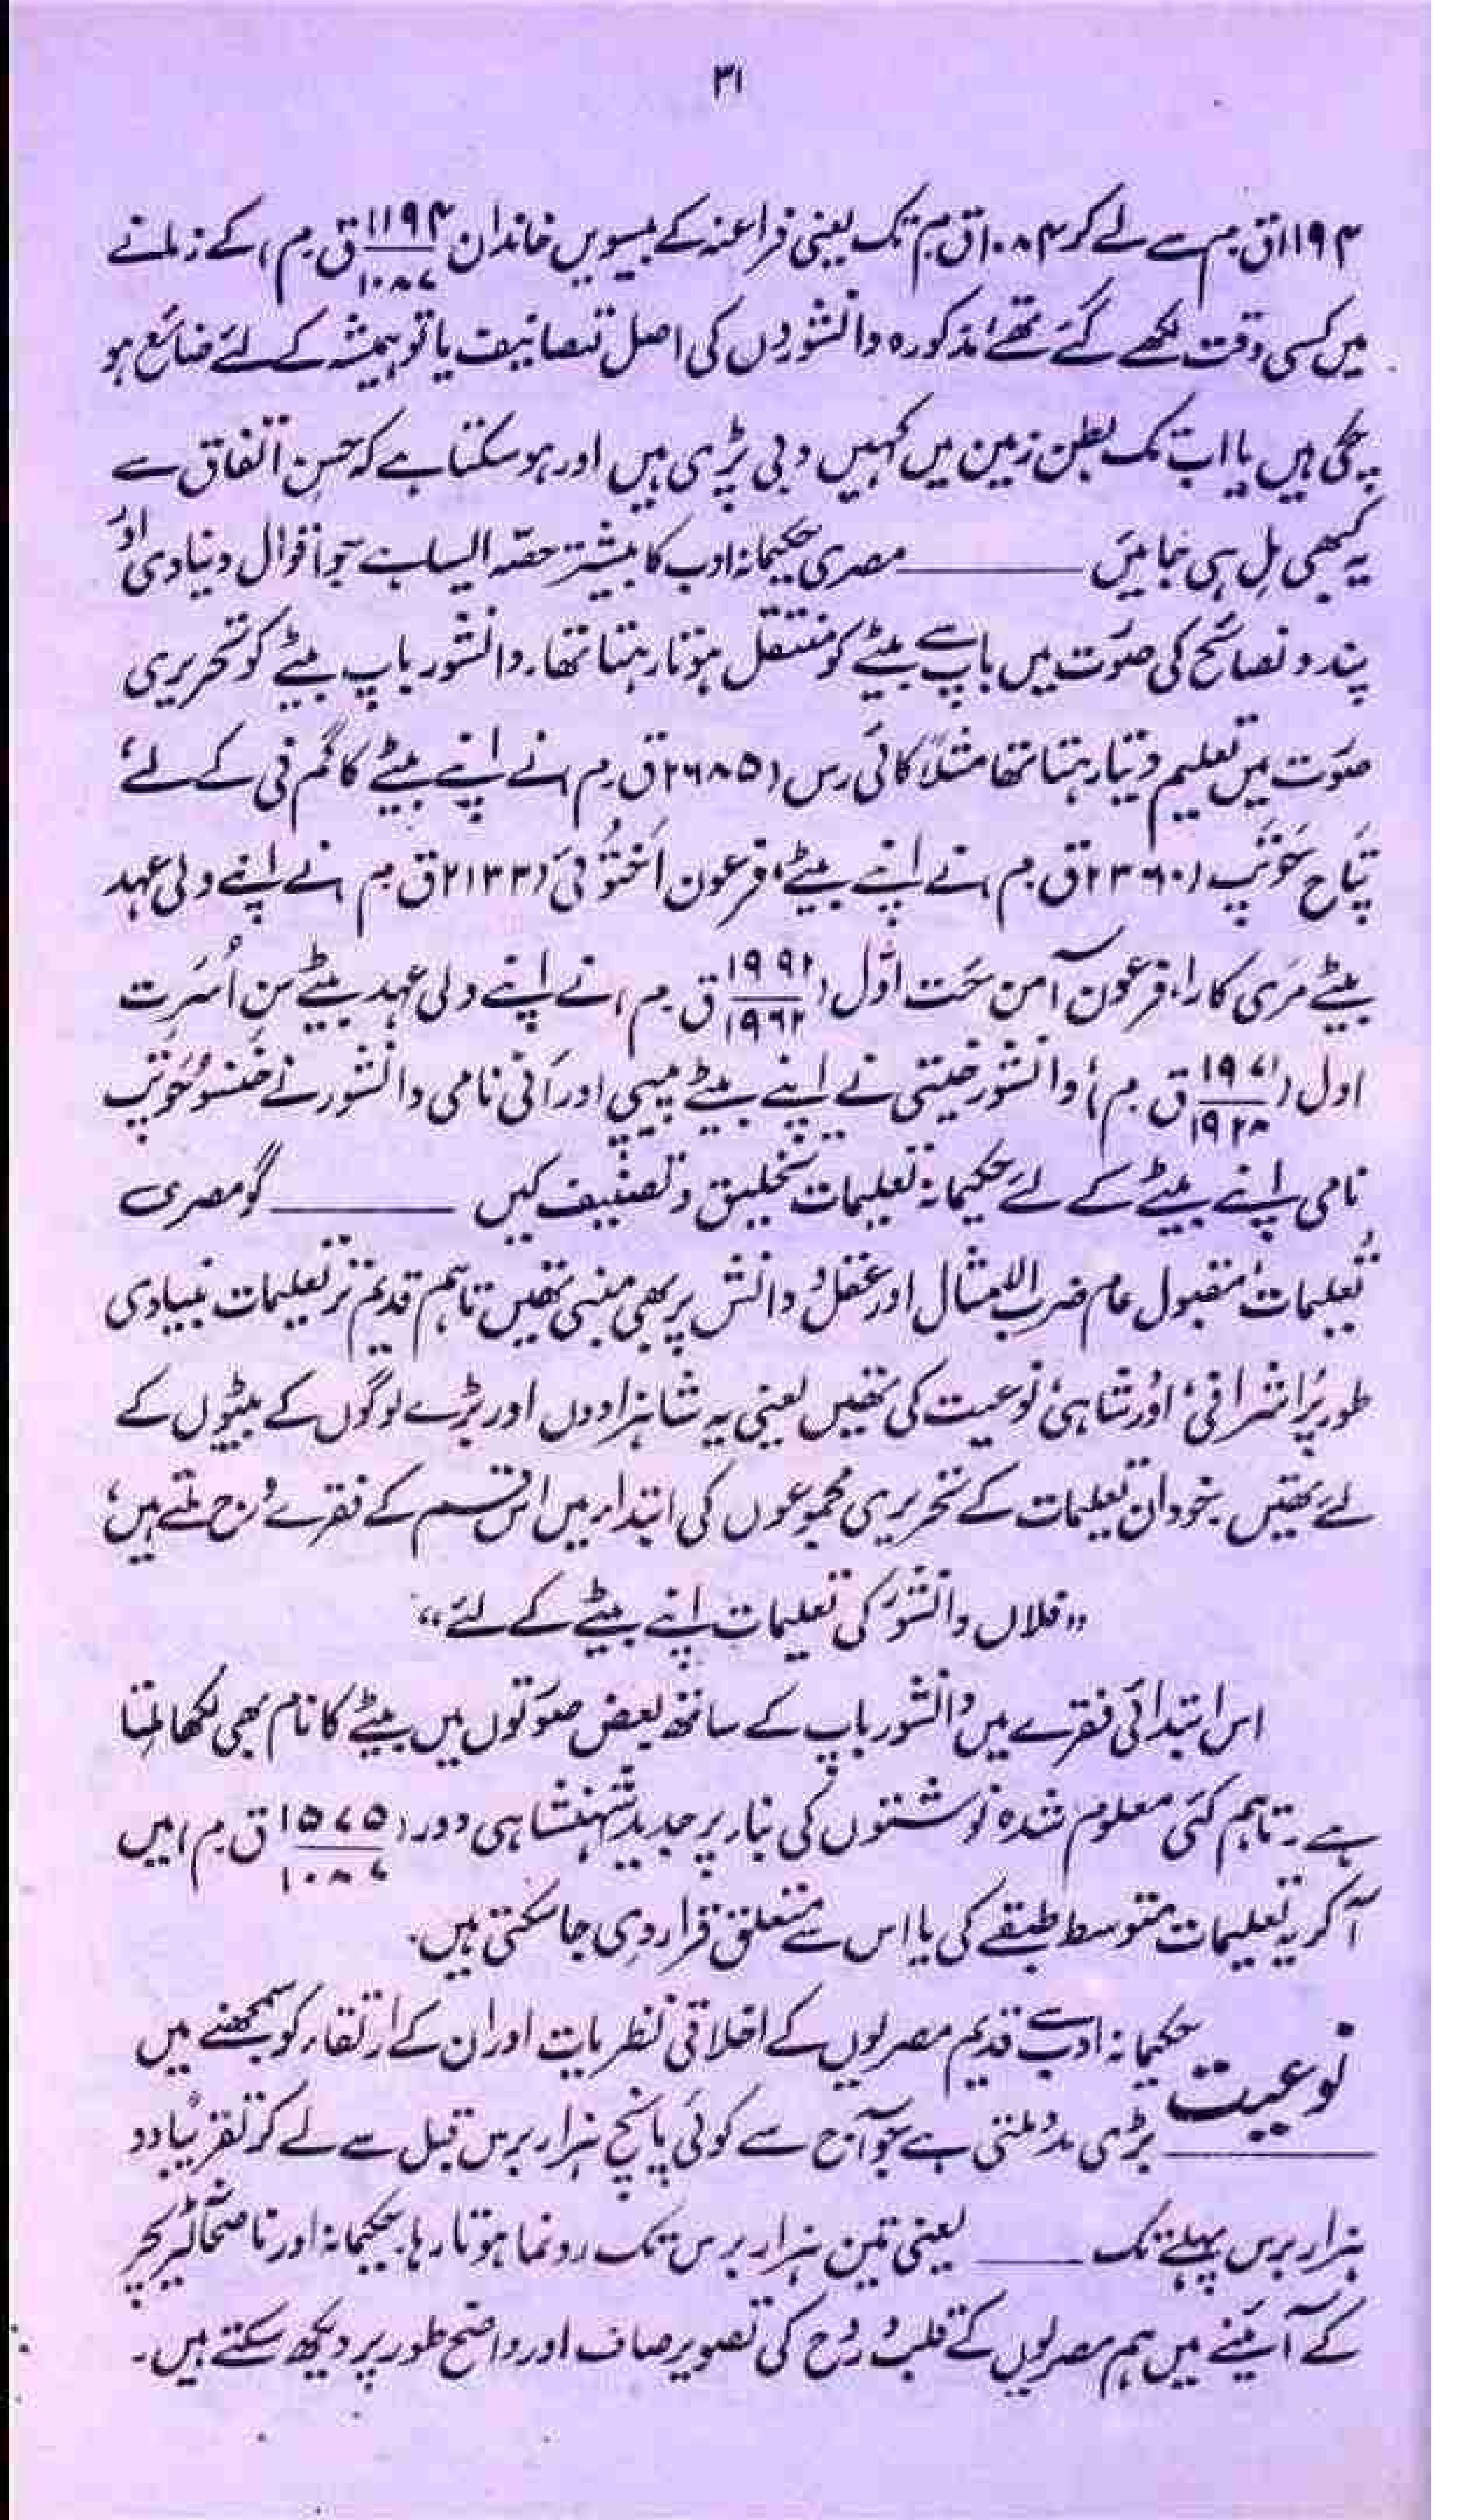 ۳۱
۱۱۹۴ ق.م سے لے کر ۱۰۸۴ ق.م تک یعنی فراعنہ کے بیسویں خاندان ۱۱۹۴/۱۰۸۷ ق.م) کے زمانے
میں کسی وقت لکھے گئے تھے، مذکورہ دانشوروں کی اصل تصانیف یا تو ہمیشہ کے لئے ضائع ہو
چکی ہیں یا اب تک بطن زمین میں کہیں دبی پڑی ہیں اور ہو سکتا ہے کہ حسنِ اتفاق سے
یہ کبھی مل ہی جائیں ______ مصری حکیمانہ ادب کا بیشتر حصّہ ایسا ہے جو اقوال دنیاوی اور
پند و نصائح کی صوُرت میں باپ سے بیٹے کو منتقل ہوتا رہتا تھا۔ دانشور باپ بیٹے کو تحریری
صوُرت میں تعلیم دیتا رہتا تھا مثلاً کائی رس (۲۶۸۵ ق.م) نے اپنے بیٹے کاگم نی کے لئے،
پتاح حوتپ (۲۳۶۰ ق.م) نے اپنے بیٹے، فرعون اختوئی (۲۱۳۳ ق.م) نے اپنے ولی عہد
بیٹے مَری کارا، فرعون آمن مَحت اوّل (۱۹۹۲/۱۹۶۲ ق.م) نے اپنے ولی عہد بیٹے سِن اُسَرت
اول (۱۹۷۱/۱۹۲۸ ق.م)، دانشور خیتی نے اپنے بیٹے پیپی اور آنی نامی دانشور نے خنسو حوتپ
نامی اپنے بیٹے کے لئے حکیمانہ تعلیمات تخلیق و تصنیف کیں ______ گو مصری
’تعلیمات‘ مقبول عام ضرب الامثال اور عقل و دانش پر بھی مبنی تھیں تاہم قدیم تر تعلیمات بنیادی
طور پر ’اشرافی‘ اور ’شاہی‘ نوعیت کی تھیں یعنی یہ شاہزادوں اور بڑے لوگوں کے بیٹوں کے
لئے تھیں۔ خود ان تعلیمات کے تحریری مجموعوں کی ابتداء میں اس قسم کے فقرے درج ملتے ہیں،
”فلاں دانشور کی تعلیمات اپنے بیٹے کے لئے“
اس ابتدائی فقرے میں دانشور باپ کے ساتھ بعض صوُرتوں میں بیٹے کا نام بھی لکھا ملتا
ہے۔ تاہم کئی معلوم شدہ نوشتوں کی بناء پر جدید شہنشاہی دور (۱۵۷۵/۱۰۸۷ ق.م) میں
آ کر یہ تعلیمات متوسط طبقے کی یا اس سے متعلق قرار دی جا سکتی ہیں۔
نوعیت حکیمانہ ادب سے قدیم مصریوں کے اخلاقی نظریات اور ان کے ارتقاء کو سمجھنے میں
بڑی مدد ملتی ہے جو آج سے کوئی پانچ ہزار برس قبل سے لے کر تقریباً دو
ہزار برس پہلے تک ____ یعنی تین ہزار برس تک رونما ہوتا رہا۔ حکیمانہ اور ناصحانہ لٹریچر
کے آئینے میں ہم مصریوں کے قلب و رُوح کی تصویر صاف اور واضح طور پر دیکھ سکتے ہیں۔